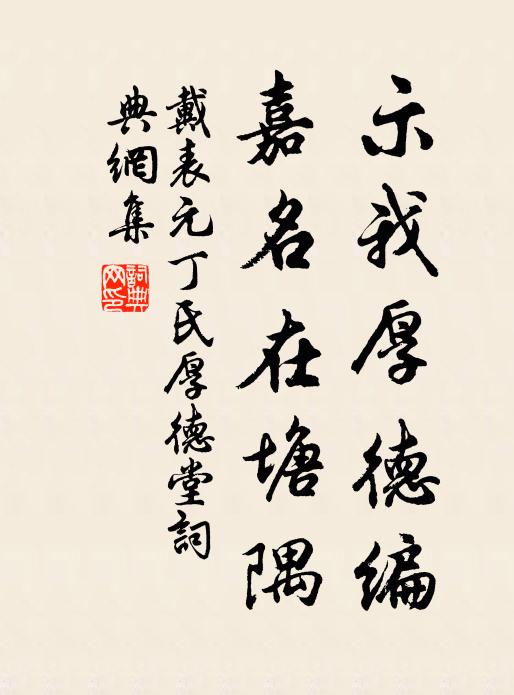 示我厚德编
嘉名在塘隅
戴表元丁氏厚德堂詞
典網集
詞典網印